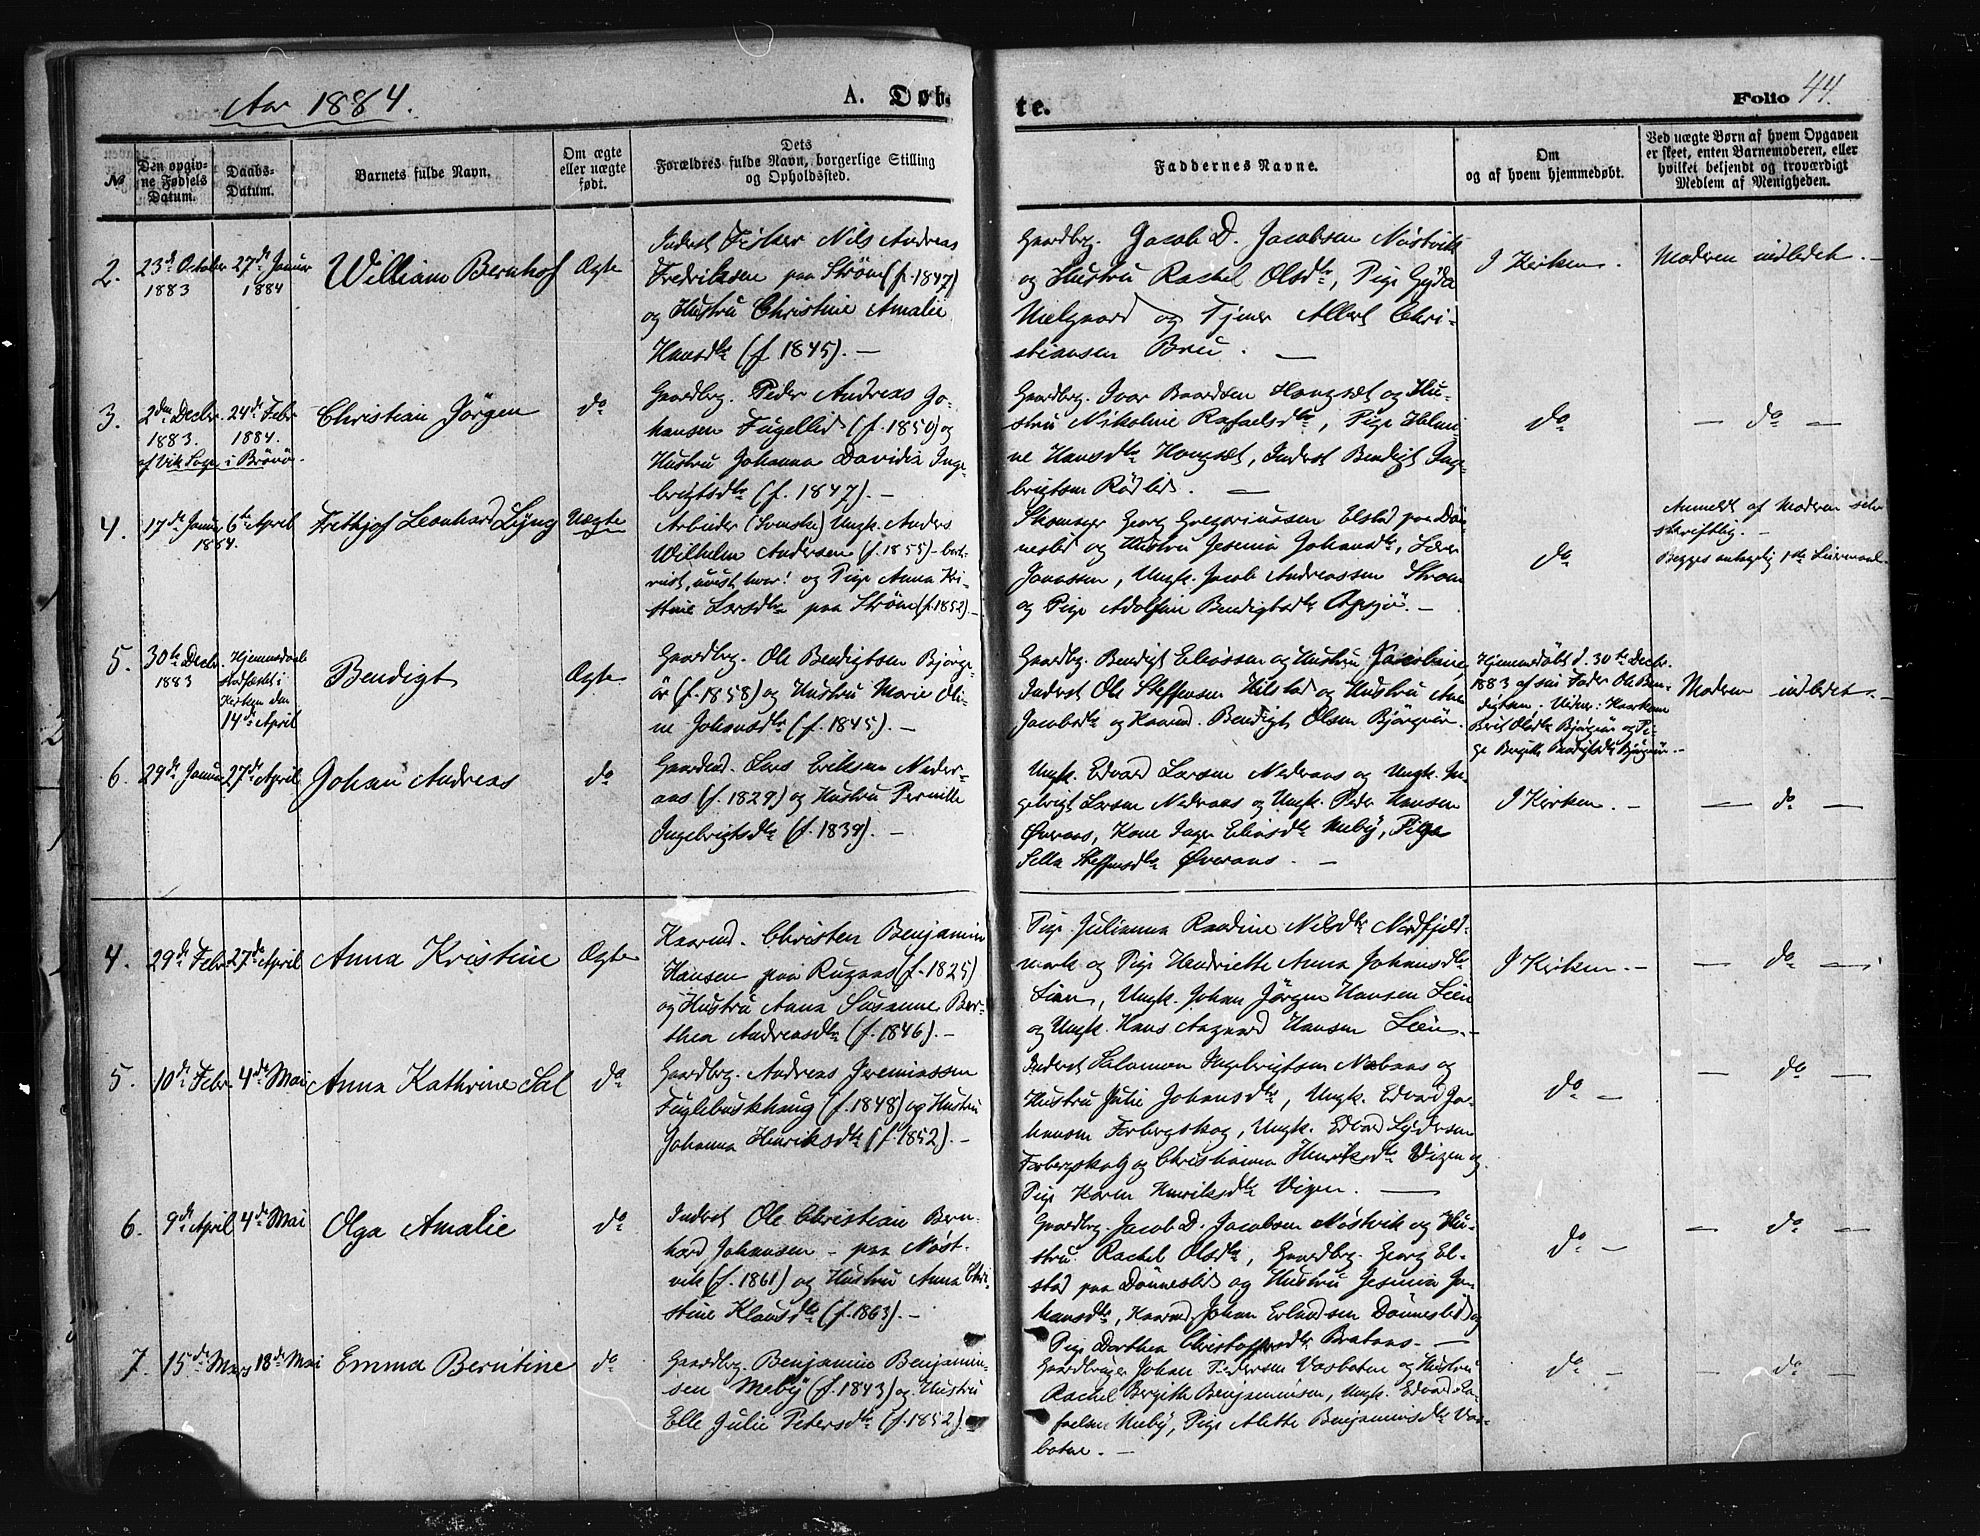 Aar 1884.
A. Døb-
te.
Folio 44.
No
Den opgiv-
ne Fødsels
Datum.
Daabs-
Datum.
Barnets fulde Navn.
Om ægte
eller uægte
født.
Dets
Forældres fulde Navn, borgerlige Stilling
og Opholdssted.
Faddernes Navne.
Om
og af hvem hjemmedøbt.
Ved uægte Børn af hvem Opgaven
er skeet, enten Barnemoderen, eller
hvilket betjendt og troværdigt
Medlem af Menigheden.
2.
23de October
1883
27de Januar
1884
William Bernhof
Ægte
Inderst Fisker Nils Andreas
Fredriksen paa Strøm (f. 1847)
og Hustru Christine Amalie
Hansdtr (f. 1845). —
Gaardbrg. Jacob D. Jacobsen Nøstvik
og Hustru Rachel Olsdtr, Pige Gyda
og Tjener Albert Chri-
stiansen Breu. —
I Kirken. -
Moderen indledet. -
3.
2den Decbr
1883.
af Vik Sogn i Brønø.
24de Febr
1884.
Christian Jörgen
do
Gaardbrg. Peder Andreas Jo-
hansen Fugellid (f. 1850) og
Hustru Johanna Davidia Inge-
brigtsdtr (f. 1847). —
Gaardbrg. Ivar Baardsen Hongsæt og Hu-
stru Nikoline Rafaelsdtr, Pige
ne Hansdtr Hongsæt, Inderst Bendigt Ing-
brigtsen Rödlid. —
do
— do —
4.
17de Januar
1884.
6te April
Frithjof Leonhard Lyng
Uægte
Arbeider (Svensk) Ungk. Anders
Wilhelm Andersen (f. 1855) - bort-
reist, uvist hvor! og Pige Anna Kri-
stine Larsdtr paa Strøm (f. 1852). -
Georg Gregeriussen Elstad paa Dön-
neslid og Hustru Jesenia Johansdtr,
Jonassen, Ungk. Jacob Andreassen Strøm
og Pige Adolfine Bendigtsdtr -
do
Anmeldt af Moderen selv
skriftlig. -
Begges antagelig 1ste Leiermaal.
5.
30te Decbr.
1883
Hjemmedaab
stadfæstet i
Kirken den
14de April
Bendigt
Ægte
Gaardbrg. Ole Bendigtsen Björge-
ör (f. 1858) og Hustru Marie Oli-
ne Johansdtr (f. 1845). —
Gaardbrg. Bendigt Eliassen og Hustru Jacobine,
Inderst Ole Steffensen Hilstad og Hustru Ane
Jacobsdtr og Kaarmd. Bendigt Olsen Björgeör.
Hjemmedöbt d. 30te Decbr.
1883 af sin Fader Ole Ben-
digtsen. Vidner: Kaarkone
Berit Olsdtr Björgeör og Pi-
ge Bergitte Bendigtsdtr Björgeör. -
Moderen indledet. -
6.
29de Januar
27de April
Johan Andreas
do
Gaardmd. Lars Eriksen Neder-
aas (f. 1829) og Hustru Pernille
Ingebrigtsdtr (f. 1839). —
Ungk. Edvard Larsen Nederaas og Ungk. In-
gebrigt Larsen Nederaas og Ungk. Peder Hansen
Øveraas, Kone Inger Eliasdtr Meby, Pige
Sella Steffensdtr Øveraas. —
I Kirken. -
— do —
4.
29de Febr
27de April
Anna Kristine
Ægte
Kaarmd. Christen Benjamin
Hansen paa Rugaas (f. 1825)
og Hustru Anna Susanne Ber-
thea Andreasdtr (f. 1846). -
Pige Julianna Raadine Nilsdtr Nordfjeld-
mark og Pige Henriette Anna Johansdtr
Lien, Ungk. Johan Jörgen Hansen Lien
og Ungk. Hans Aagaard Hansen Lien. -
I Kirken. -
— do —
5.
10de Febr.
4de Mai
Anna Kathrine Sal
do
Gaardbrg. Andreas Jeremiassen
Fuglebuskhaug (f. 1848) og Hustru
Johanna Henriksdtr (f. 1852). -
Inderst Salamon Ingebrigtsen Næbaas og
Hustru Julie Johansdtr, Ungk. Edvard Jo-
hansen Forbergskog, Ungk. Edvard Lydersen
Forbergskog og Christianna Henriksdtr Vigen og
Pige Karen Henriksdtr Vigen. —
do -
— do —
6.
9de April
4de Mai
Olga Amalie
do
Inderst Ole Christian Bern-
hard Johansen - paa Nøst-
vik (f. 1861) og Hustru Anna Chri-
stine Klausdtr (f. 1863). -
Gaardbrg. Jacob D. Jacobsen Nöstvik og Hu-
stru Rachel Olsdtr, Gaardbrg. Georg El-
stad paa Dönneslid og Hustru Jesenia Jo-
hansdtr, Kaarmd. Johan Erlandsen Dönneslid og
Pige Dorthea Christoffersdtr Brataas. —
do -
— do —
7.
15de Mars
18de Mai
Emma Berntine
do
Gaardbrg. Benjamin Benjamin-
sen Meby (f. 1843) og Hustru
Elle Julie Petersdtr (f. 1852). -
Gaardbruger Johan Pedersen Vasbotn og Hustru
Rachel Bergitte Benjaminsen, Ungk. Edvard Ra-
faelsen Meby, Pige Alette Benjaminsdtr Vas-
botne. —
do -
— do —